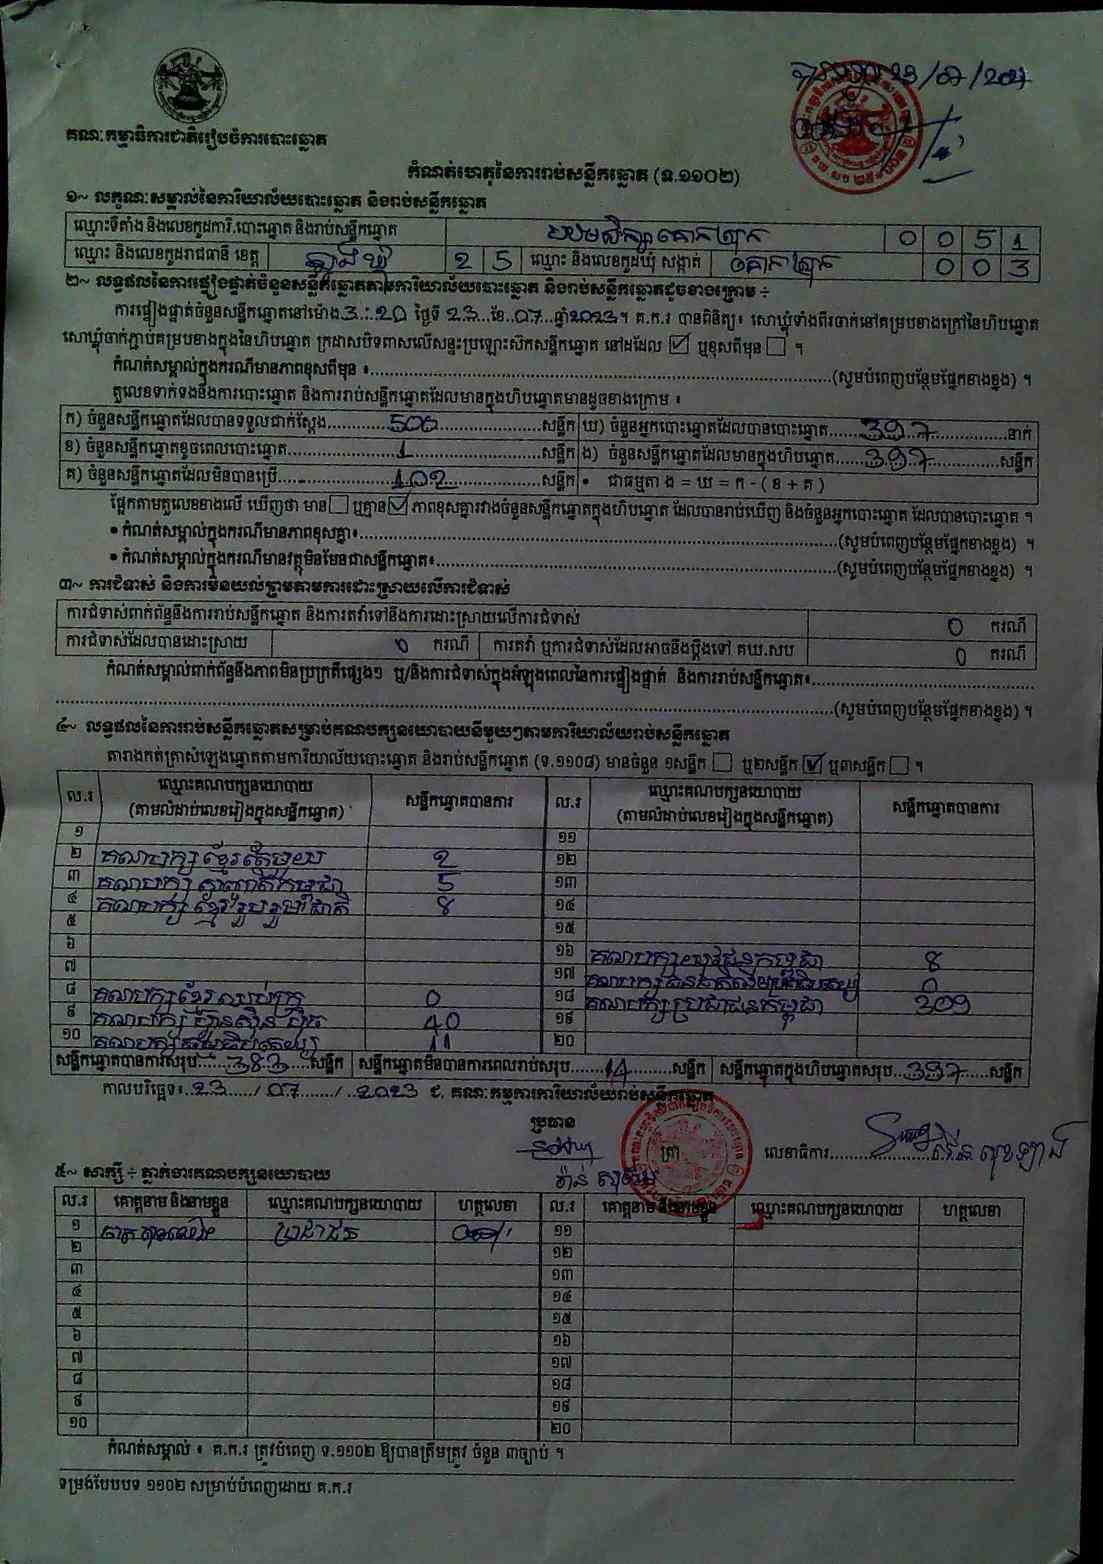 គណៈកម្មាធិការជាតិរៀបចំការបោះឆ្នោត
កំណត់ហេតុនៃការរាប់សន្លឹកឆ្នោត (ទ.១១០២)
១~ លក្ខណៈសម្គាល់នៃការិយាល័យបោះឆ្នោត និងរាប់សន្លឹកឆ្នោត
ឈ្មោះទីតាំង និងលេខកូដការិ.បោះឆ្នោត និងរាប់សន្លឹកឆ្នោត 0 0 5 1
ឈ្មោះ និងលេខកូដរាជធានី ខេត្ត 2 5 ឈ្មោះ និងលេខកូដឃុំ សង្កាត់ 0 0 3
២~ លទ្ធផលនៃការផ្ទៀងផ្ទាត់ចំនួនសន្លឹកឆ្នោតតាមការិយាល័យបោះឆ្នោត និងរាប់សន្លឹកឆ្នោតដូចខាងក្រោម ÷
ការផ្ទៀងផ្ទាត់ចំនួនសន្លឹកឆ្នោតនៅម៉ោង 3:20 ថ្ងៃទី 23 ខែ 07 ឆ្នាំ 2023។ គ.ក.រ បានពិនិត្យ៖ សោឃ្លុំទាំងពីរចាក់នៅគម្របខាងក្រៅនៃហិបឆ្នោត
សោឃ្លុំចាក់ភ្ជាប់គម្របខាងក្នុងនៃហិបឆ្នោត ក្រដាសបិទពាសលើសន្ទះប្រឡោះសិកសន្លឹកឆ្នោត នៅដដែល ☑ ឬខុសពីមុន ☐ ។
កំណត់សម្គាល់ក្នុងករណីមានភាពខុសពីមុន ៖ (សូមបំពេញបន្ថែមផ្នែកខាងខ្នង) ។
តួលេខទាក់ទងនឹងការបោះឆ្នោត និងការរាប់សន្លឹកឆ្នោតដែលមានក្នុងហិបឆ្នោតមានដូចខាងក្រោម ៖
ក) ចំនួនសន្លឹកឆ្នោតដែលបានទទួលជាក់ស្ដែង 500 សន្លឹក ឃ) ចំនួនអ្នកបោះឆ្នោតដែលបានបោះឆ្នោត 397 នាក់
ខ) ចំនួនសន្លឹកឆ្នោតខូចពេលបោះឆ្នោត 1 សន្លឹក ង) ចំនួនសន្លឹកឆ្នោតដែលមានក្នុងហិបឆ្នោត 397 សន្លឹក
គ) ចំនួនសន្លឹកឆ្នោតដែលមិនបានប្រើ 102 សន្លឹក • ជាធម្មតា ង = ឃ = ក - ( ខ + គ )
ផ្អែកតាមតួលេខខាងលើ ឃើញថា មាន ☐ ឬគ្មាន ☑ ភាពខុសគ្នារវាងចំនួនសន្លឹកឆ្នោតក្នុងហិបឆ្នោត ដែលបានរាប់ឃើញ និងចំនួនអ្នកបោះឆ្នោត ដែលបានបោះឆ្នោត ។
• កំណត់សម្គាល់ក្នុងករណីមានភាពខុសគ្នា៖ (សូមបំពេញបន្ថែមផ្នែកខាងខ្នង) ។
• កំណត់សម្គាល់ក្នុងករណីមានវត្ថុមិនមែនជាសន្លឹកឆ្នោត៖ (សូមបំពេញបន្ថែមផ្នែកខាងខ្នង) ។
៣~ ការជំទាស់ និងការមិនយល់ព្រមតាមការដោះស្រាយលើការជំទាស់
ការជំទាស់ពាក់ព័ន្ធនឹងការរាប់សន្លឹកឆ្នោត និងការតវ៉ាទៅនឹងការដោះស្រាយលើការជំទាស់ 0 ករណី
ការជំទាស់ដែលបានដោះស្រាយ 0 ករណី ការតវ៉ា ឬការជំទាស់ដែលអាចនឹងប្ដឹងទៅ គឃ.សប 0 ករណី
កំណត់សម្គាល់ពាក់ព័ន្ធនឹងភាពមិនប្រក្រតីផ្សេងៗ ឬ/និងការជំទាស់ក្នុងអំឡុងពេលនៃការផ្ទៀងផ្ទាត់ និងការរាប់សន្លឹកឆ្នោត៖
(សូមបំពេញបន្ថែមផ្នែកខាងខ្នង) ។
៤~ លទ្ធផលនៃការរាប់សន្លឹកឆ្នោតសម្រាប់គណបក្សនយោបាយនីមួយៗតាមការិយាល័យរាប់សន្លឹកឆ្នោត
តារាងកត់ត្រាសំឡេងឆ្នោតតាមការិយាល័យបោះឆ្នោត និងរាប់សន្លឹកឆ្នោត (ទ.១១០៨) មានចំនួន ១សន្លឹក ☐ ឬ២សន្លឹក ☑ ឬ៣សន្លឹក ☐ ។
ល.រ ឈ្មោះគណបក្សនយោបាយ (តាមលំដាប់លេខរៀងក្នុងសន្លឹកឆ្នោត) សន្លឹកឆ្នោតបានការ ល.រ ឈ្មោះគណបក្សនយោបាយ (តាមលំដាប់លេខរៀងក្នុងសន្លឹកឆ្នោត) សន្លឹកឆ្នោតបានការ
១ ១១
២ គណបក្ស ខ្មែរតែមួយ 2 ១២
៣ គណបក្ស 5 ១៣
៤ គណបក្ស ខ្មែររួបរួមជាតិ 8 ១៤
៥ ១៥
៦ ១៦ គណបក្សយុវជនកម្ពុជា 8
៧ ១៧ គណបក្ស 0
៨ គណបក្សខ្មែរឈប់ក្រ 0 ១៨ គណបក្សប្រជាជនកម្ពុជា 309
៩ គណបក្ស ហ៊្វុនស៊ិនប៉ិច 40 ១៩
១០ គណបក្ស 11 ២០
សន្លឹកឆ្នោតបានការសរុប 383 សន្លឹក សន្លឹកឆ្នោតមិនបានការពេលរាប់សរុប 14 សន្លឹក សន្លឹកឆ្នោតក្នុងហិបឆ្នោតសរុប 397 សន្លឹក
កាលបរិច្ឆេទ៖ 23 / 07 / 2023 ជ. គណៈកម្មការការិយាល័យរាប់សន្លឹកឆ្នោត
ប្រធាន
លេខាធិការ
៥~ សាក្សី ÷ ភ្នាក់ងារគណបក្សនយោបាយ
ល.រ គោត្តនាម និងនាមខ្លួន ឈ្មោះគណបក្សនយោបាយ ហត្ថលេខា ល.រ គោត្តនាម និងនាមខ្លួន ឈ្មោះគណបក្សនយោបាយ ហត្ថលេខា
១ ប្រជាជន ១១
២ ១២
៣ ១៣
៤ ១៤
៥ ១៥
៦ ១៦
៧ ១៧
៨ ១៨
៩ ១៩
១០ ២០
កំណត់សម្គាល់ ៖ គ.ក.រ ត្រូវបំពេញ ទ.១១០២ ឱ្យបានត្រឹមត្រូវ ចំនួន ៣ច្បាប់ ។
ទម្រង់បែបបទ ១១០២ សម្រាប់បំពេញដោយ គ.ក.រ